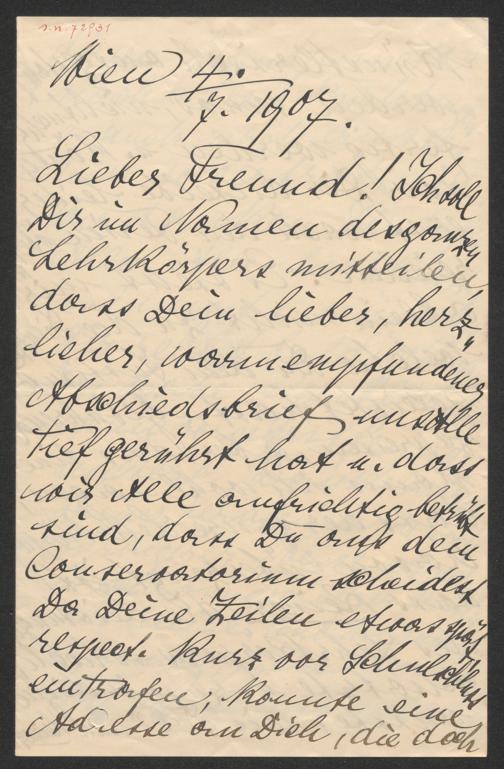 s.n. 72931
Wien 4./7. 1907.
Lieber Freund! Ich soll
Dir im Namen des ganzen
Lehrkörpers mitteilen,
dass Dein lieber, herz„
licher, warmempfundener
Abschiedsbrief uns Alle
tief gerührt hat u. dass
wir Alle aufrichtig betrübt
sind, dass Du aus dem
Conservatorium scheidest
Da Deine Zeilen etwas spät
respect. kurz vor Schulschluss
eintrafen, konnte eine
Adresse an Dich, die doch